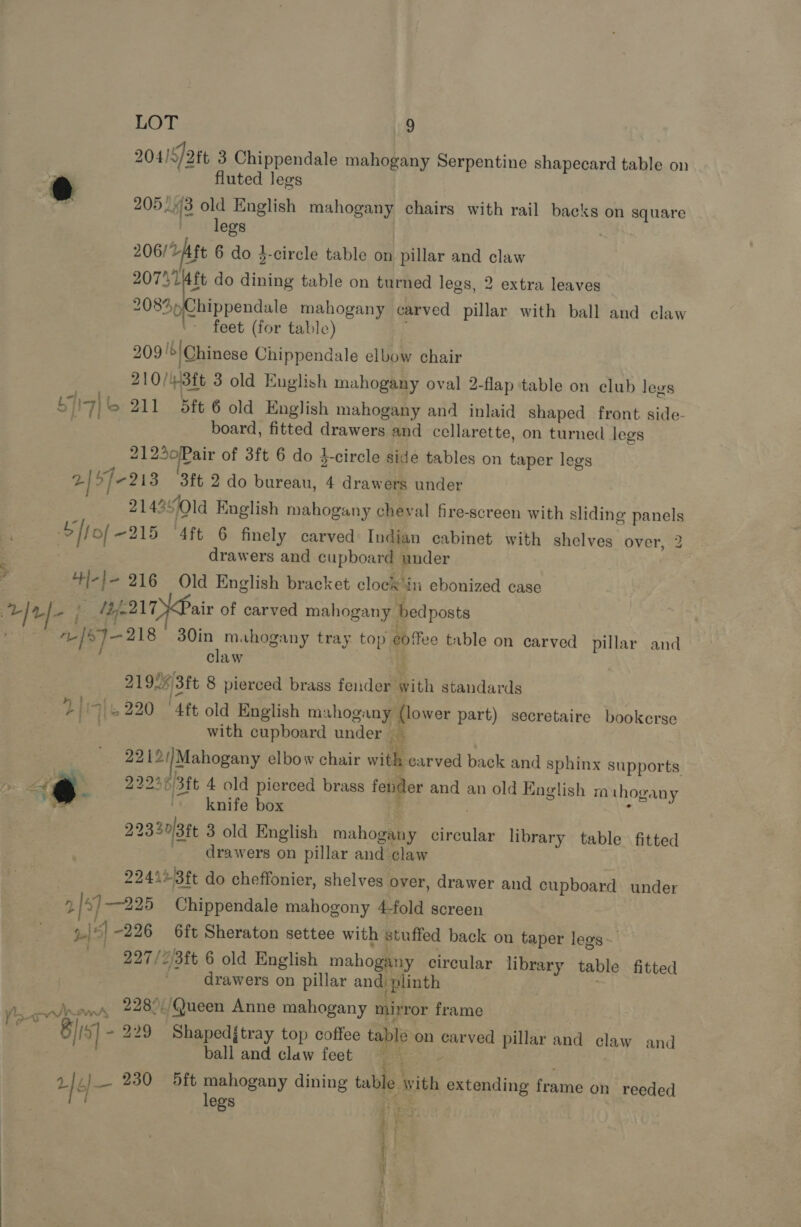 LOT 9
204 2ft 3 Chippendale mahogany Serpentine shapecard table on
fluted legs
205 3 old English mahogany chairs with rail backs on square
legs
206 4ft 6 do ½-circle table on pillar and claw
207 4ft do dining table on turned legs, 2 extra leaves
208 Chippendale mahogany carved pillar with ball and claw
feet (for table)
209 Chinese Chippendale elbow chair
210 3ft 3 old English mahogany oval 2-flap table on club legs
211 5ft 6 old English mahogany and inlaid shaped front side-
board, fitted drawers and cellarette, on turned legs
212 Pair of 3ft 6 do ½-circle side tables on taper legs
213 3ft 2 do bureau, 4 drawers under
214 Old English mahogany cheval fire-screen with sliding panels
215 4ft 6 finely carved Indian cabinet with shelves over, 2
drawers and cupboard under
216 Old English bracket clock in ebonized case
217 Pair of carved mahogany bedposts
218 30in mahogany tray top coffee table on carved pillar and
claw
219 3ft 8 pierced brass fender with standards
220 4ft old English mahogany (lower part) secretaire bookcrse
with cupboard under
221 Mahogany elbow chair with carved back and sphinx supports
222 3ft 4 old pierced brass fender and an old English mahogany
knife box
223 3ft 3 old English mahogany circular library table fitted
drawers on pillar and claw
224 3ft do cheffonier, shelves over, drawer and cupboard under
225 Chippendale mahogony 4-fold screen
226 6ft Sheraton settee with stuffed back on taper legs
227 3ft 6 old English mahogany circular library table fitted
drawers on pillar and plinth
228 Queen Anne mahogany mirror frame
229 Shaped tray top coffee table on carved pillar and claw and
ball and claw feet
230 5ft mahogany dining table with extending frame on reeded
legs